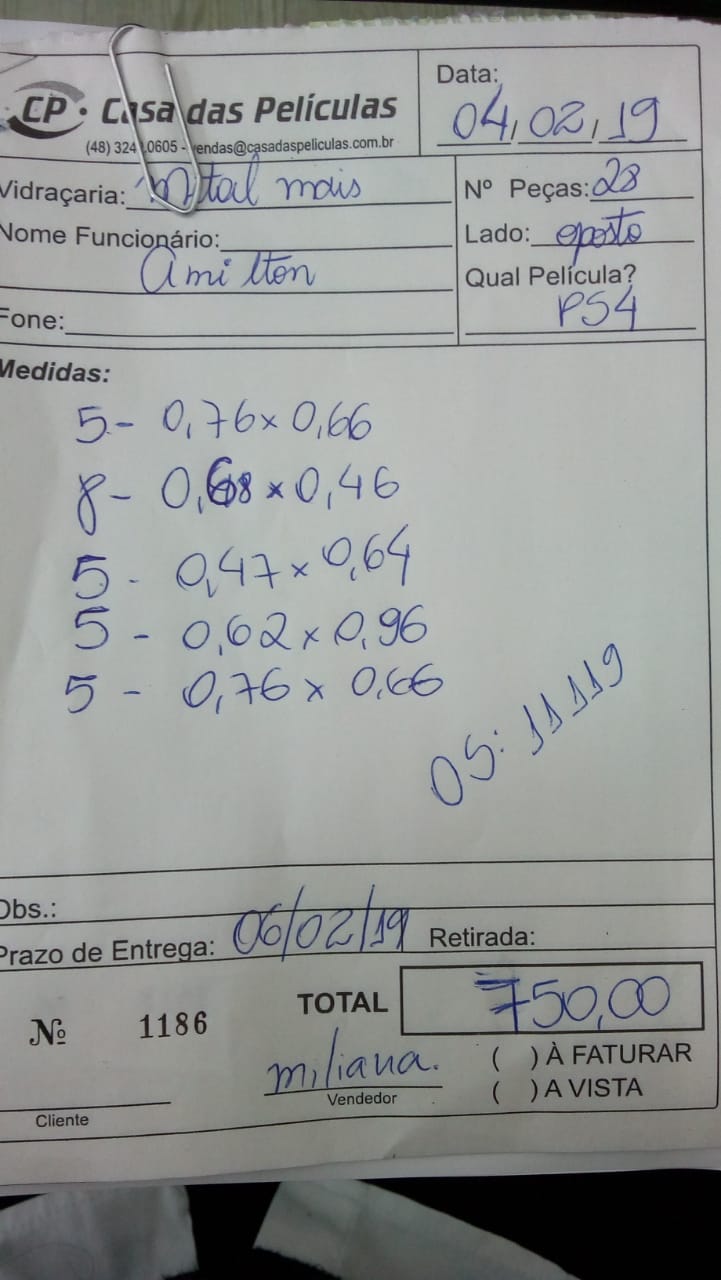 CP • Casa das Películas
(48) 324 0605 - vendas@casadaspeliculas.com.br
Data: 04,02,19
Vidraçaria: Mital mais
Nome Funcionário:
Amilton
Fone:
Nº Peças: 28
Lado: oposto
Qual Película?
PS4
Medidas:
5 - 0,76 x 0,66
8 - 0,68 x 0,46
5 - 0,47 x 0,64
5 - 0,62 x 0,96
5 - 0,76 x 0,66
OS: 11119
Obs.:
Prazo de Entrega: 06/02/19 Retirada:
Nº 1186 TOTAL 750,00
miliana.
Vendedor
( ) À FATURAR
( ) A VISTA
Cliente